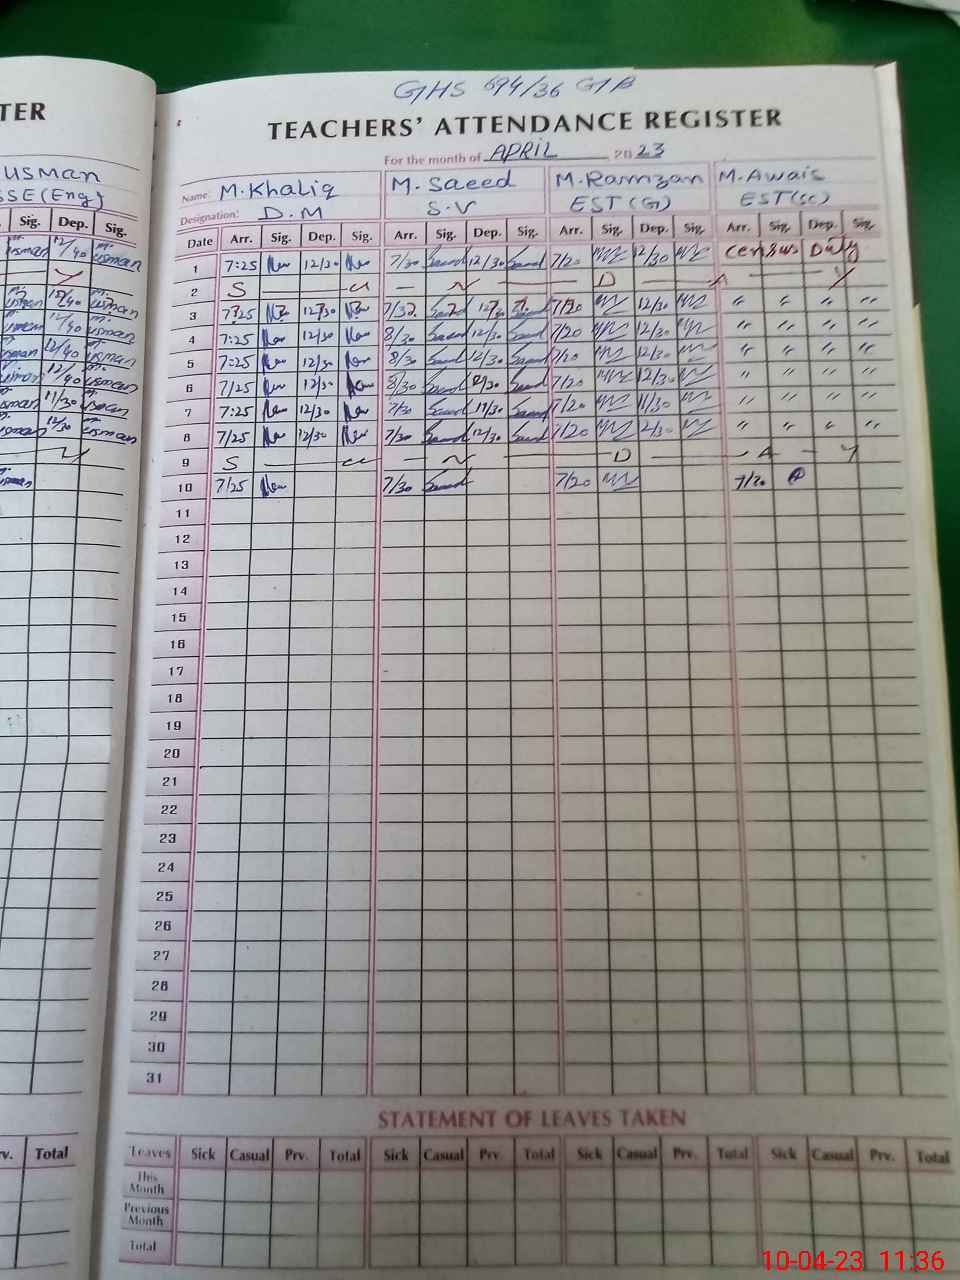 TER
usman
SSE(Eng)
Sig. Dep. Sig.
GHS 694/36 GB
TEACHERS' ATTENDANCE REGISTER
For the month of APRIL 2023
Name: M.Khaliq M. Saeed M.Ramzan M.Awais
Designation: D.M S.V EST(G) EST(SC)
Date Arr. Sig. Dep. Sig. Arr. Sig. Dep. Sig. Arr. Sig. Dep. Sig. Arr. Sig. Dep. Sig.
1 7:25 12/30 7/30 Saeed 12/30 Saeed 7/20 12/30 census Duty
2 S u N D A Y
3 7:25 12/30 7/30 Saeed 12/30 7/20 12/30 " " " "
4 7:25 12/30 8/30 Saeed 12/30 Saeed 7/20 12/30 " " " "
5 7:25 12/30 8/30 Saeed 12/30 Saeed 7/20 12/30 " " " "
6 7/25 12/30 8/30 Saeed 12/30 Saeed 7/20 12/30 " " " "
7 7:25 12/30 7/30 Saeed 11/30 Saeed 7/20 11/30 " " " "
8 7/25 12/30 7/30 Saeed 12/30 Saeed 7/20 12/30 " " " "
9 S u N D A Y
10 7/25 7/30 Saeed 7/20 7/20
11
12
13
14
15
16
17
18
19
20
21
22
23
24
25
26
27
28
29
30
31
STATEMENT OF LEAVES TAKEN
rv. Total
Leaves Sick Casual Prv. Total Sick Casual Prv. Total Sick Casual Prv. Total Sick Casual Prv. Total
This Month
Previous Month
Total
10-04-23 11:36